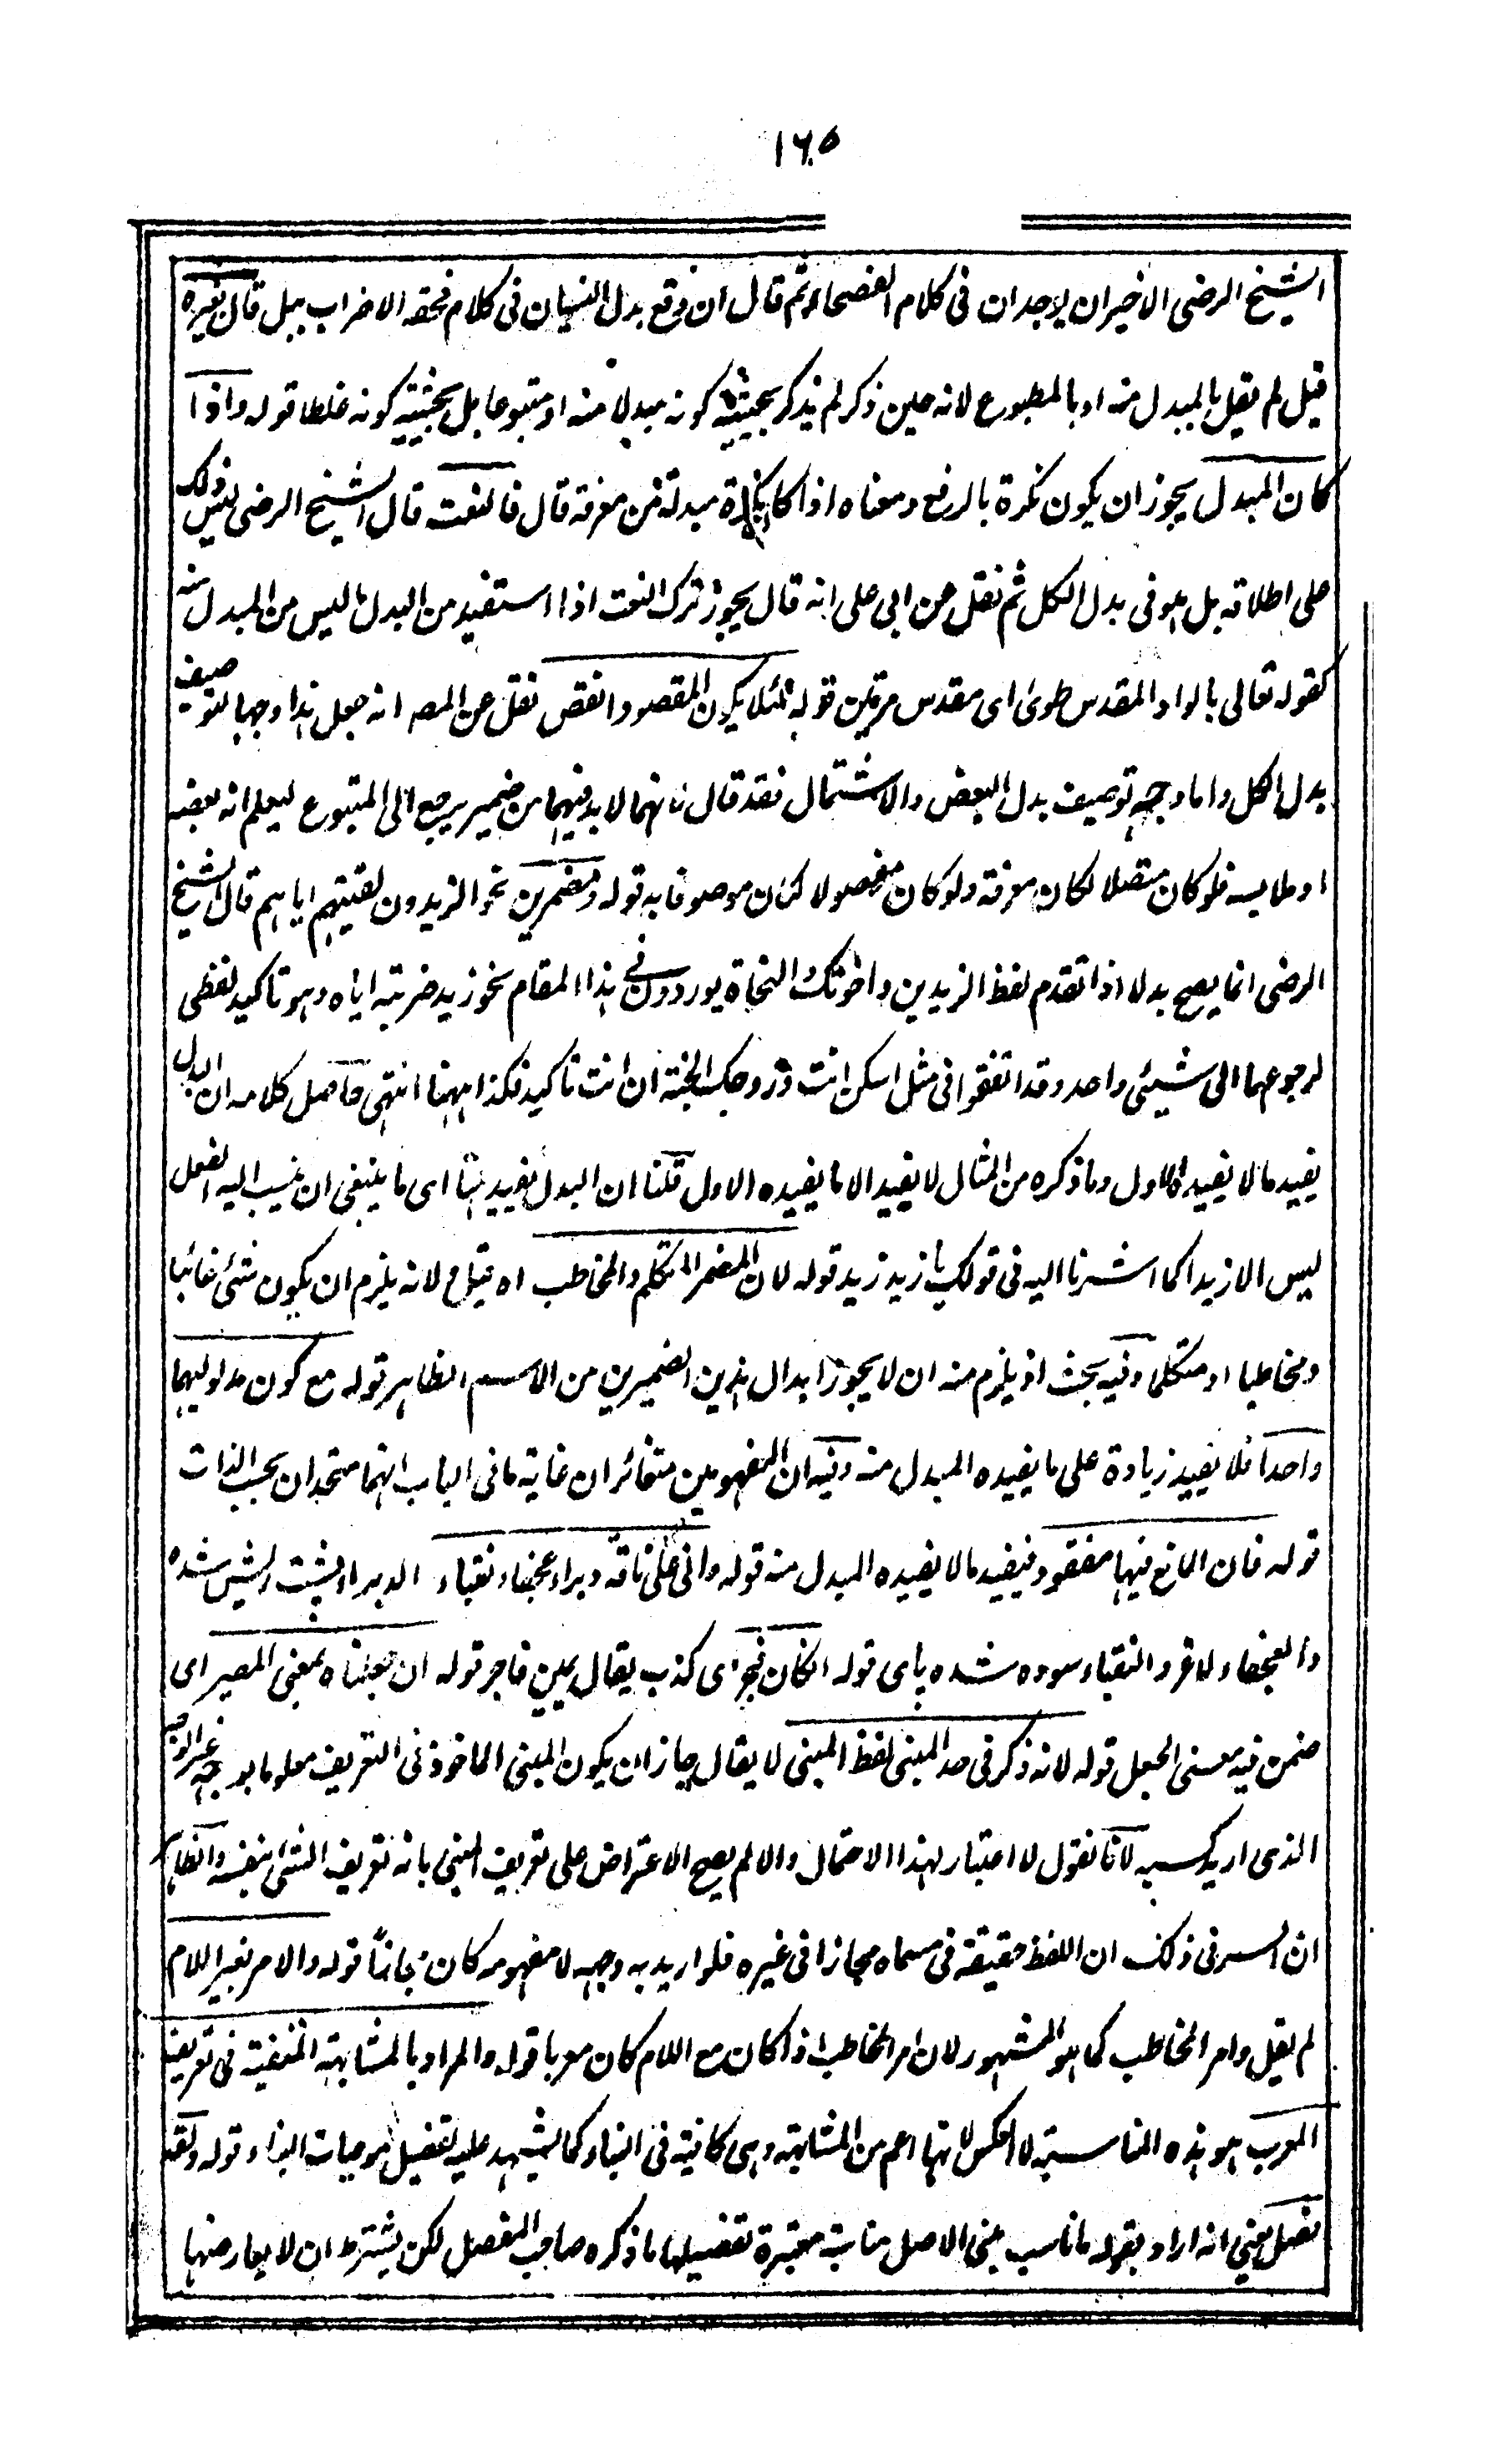 ١٦٥
الشيخ الرضى الاخيران لا يوجدان فى كلام الفصحاء ثم قال ان وقع بدل النسيان فى كلام فحقه الاضراب ببل قال بغيره
قيل لم يقل بالمبدل منه او بالمطبوع لانه حين ذكر لم يذكر بحيثية كونه مبدلا منه او متبوعا بل بحيثية كونه غلطا قوله واذا
كان المبدل يجوز ان يكون نكرة بالرفع ومعناه اذا كان نكرة مبدلة من معرفة قال فالنعت قال الشيخ الرضى ليس ذلك
على اطلاقه بل هو فى بدل الكل ثم نقل عن ابى على انه قال يجوز ترك النعت اذا استفيد من البدل ما ليس من المبدل منه
كقوله تعالى بالواد المقدس طوى اى مقدس مرتين قوله لئلا يكون المقصود انقص نقل عن المص انه جعل هذا وجها لتوصيف
بدل الكل واما وجه توصيف بدل البعض والاشتمال فقد قال انهما لا بد فيهما من ضمير يرجع الى المتبوع ليعلم انه بعضه
او ملابسه فلو كان متصلا لكان معرفة ولو كان مفصولا لكان موصوفا به قوله ومضمرين نحو الزيدون لقيتهم اياهم قال الشيخ
الرضى انما يصح بدلا اذا تقدم لفظ الزيدين واخوتك النحاة يوردون فى هذا المقام نحو زيد ضربته اياه وهو تاكيد لفظى
لرجوعهما الى شيئى واحد وقد اتفقوا فى مثل اسكن انت وزوجك الجنة ان انت تاكيد فكذا ههنا انتهى حاصل كلامه ان البدل
يفيد ما لا يفيده الاول وما ذكره من المثال لا يفيد الا ما يفيده الاول قلنا ان البدل يفيد هنا اى ما ينبغى ان ينسب اليه الفعل
ليس الا زيدا كما اشرنا اليه فى قولك يا زيد زيد قوله لان المضمر المتكلم والمخاطب اه قيل لانه يلزم ان يكون شئ غائبا
ومخاطبا او متكلما وفيه بحث اذ يلزم منه ان لا يجوز ابدال هذين الضميرين من الاسم الظاهر قوله مع كون مدلوليهما
واحدا فلا يفيد زيادة على ما يفيده المبدل منه وفيه ان المفهومين متغائران غاية ما فى الباب انهما متحدان بحسب الذات
قوله فان المانع فيها مفقود فيفيد ما لا يفيده المبدل منه قوله وانى على ناقة دبراء عجفاء نقباء الدبراء پشت ريش شده
والعجفاء لاغر والنقباء سوده شده پاى قوله ان كان فجر اى كذب يقال يمين فاجر قوله ان جعلناه بمعنى المصير اى
ضمن فيه معنى الجعل قوله لانه ذكر فى حد المبنى لفظ المبنى لا يقال جاز ان يكون المبنى الماخوذ فى التعريف معلوما بوجه غير الوجه
الذى اريد كسبه لانا نقول لا اعتبار لهذا الاحتمال والا لم يصح الاعتراض على تعريف المبنى بانه تعريف الشئ بنفسه والظاهر
ان السر فى ذلك ان اللفظ حقيقة فى مسماه مجاز فى غيره فلو اريد به وجه لا مفهومه كان مجازا قوله والامر بغير اللام
لم يقل وامر المخاطب كما هو المشهور لان امر المخاطب اذا كان مع اللام كان معربا قوله والمراد بالمشابهة المنفية فى تعريف
المعرب هو هذه المناسبة لا العكس لانها اعم من المشابهة وهى كافية فى البناء كما يشهد عليه تفصيل موجبات البناء قوله ولقد
فصل يعنى انه اراد بقوله ما ناسب مبنى الاصل مناسبة معتبرة تفصيلها ما ذكره صاحب المفصل لكن يشترط ان لا يعارضها